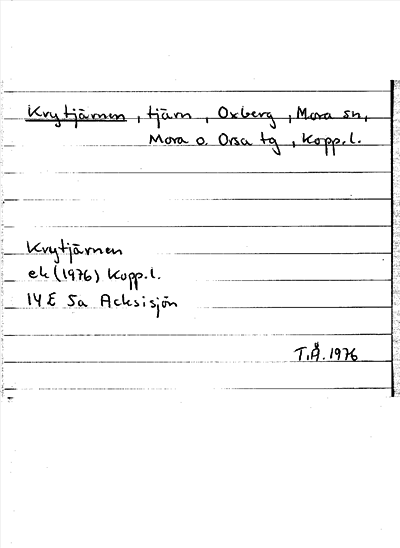 Krytjärnen, tjärn, Oxberg, Mora sn,
Mora o. Orsa tg, Kopp.l.
Krytjärnen
ek (1976) Kopp.l.
14 E 5a Acksisjön
T.Å. 1976